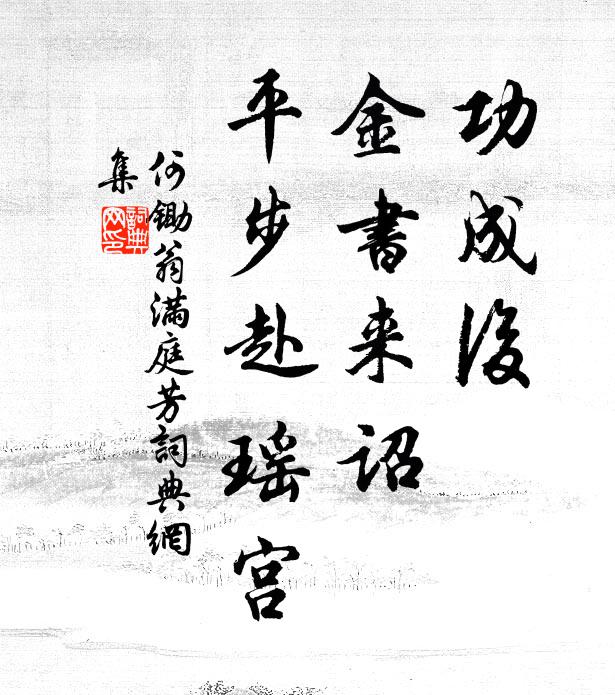 功成後
金書来詔
平步赴瑶宫
何锄翁满庭芳詞典網
集
詞典
网印